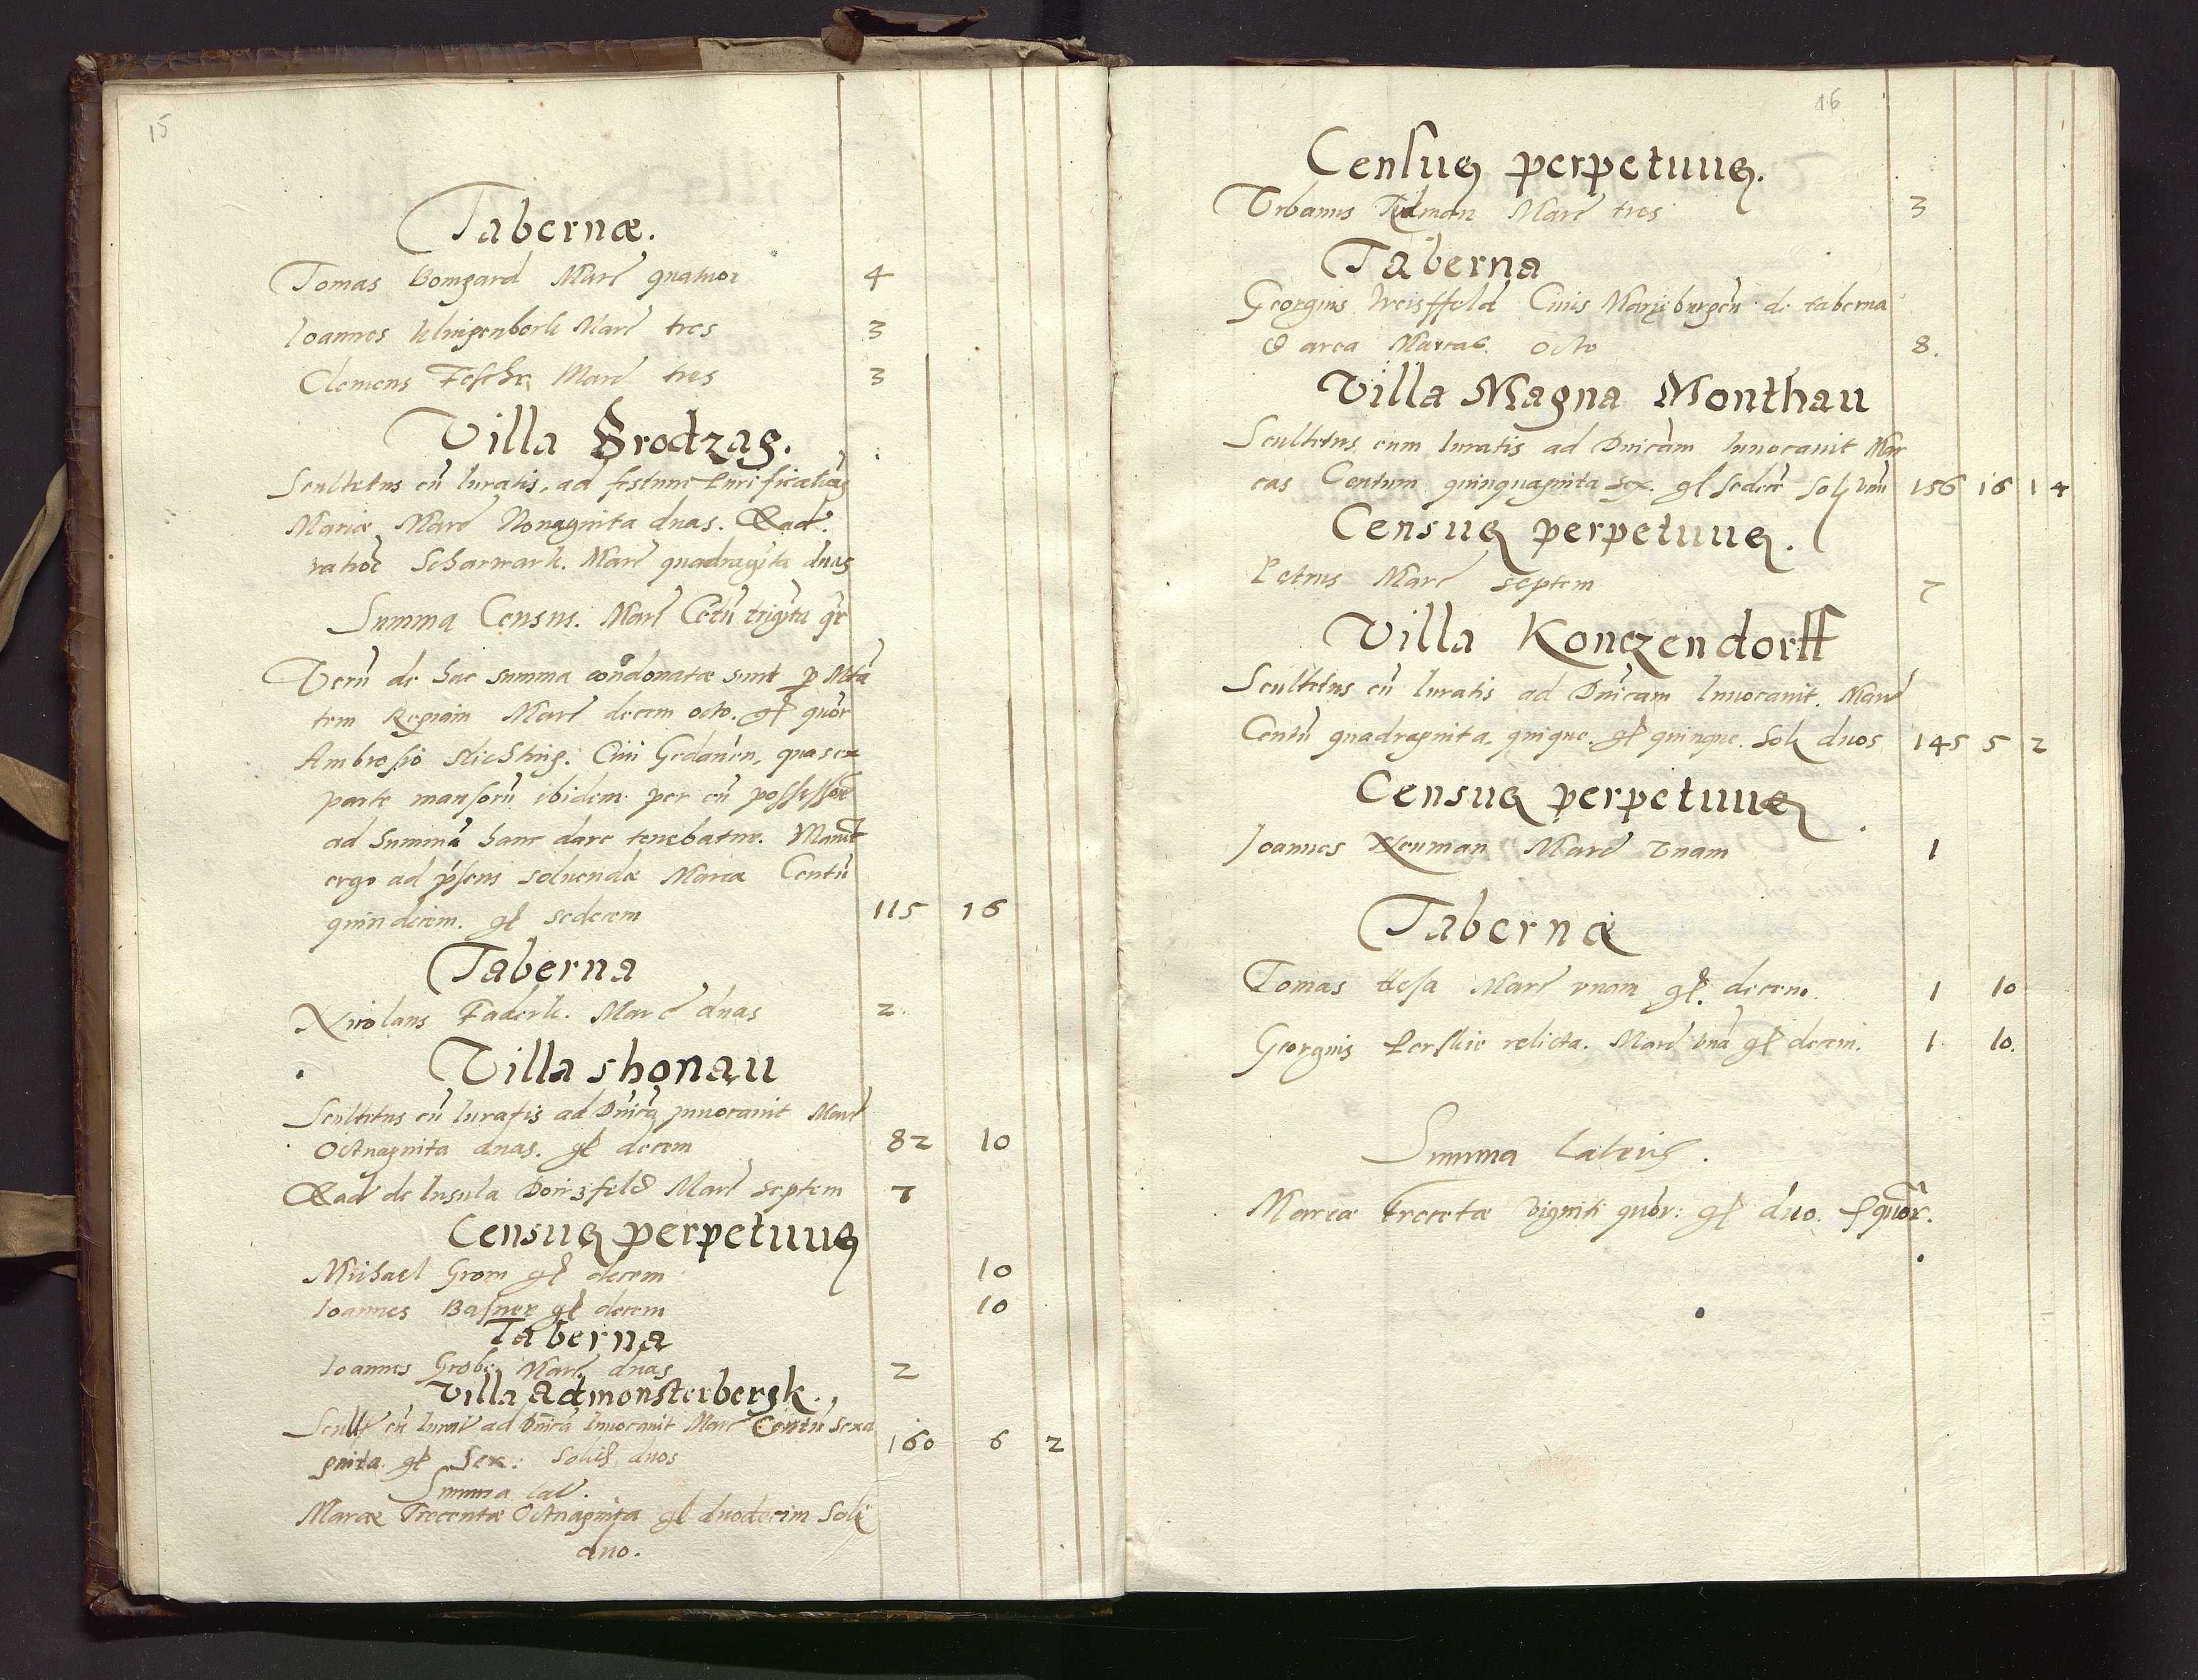 15
Tabernæ.
Tomas Bomgard Marc quatuor 4
Ioannes Klingenberk Marc tres 3
Clemens Feschr Marc tres 3
Villa Brodzag.
Scultetus cũ Iuratis, ad festum Purificatioĩs
Mariæ Marc Nonaginta duas. Ead.
ratioẽ Scharwark. Marc quadragĩta duas
Summa Census. Marc Cẽtũ trigĩta qr
Verũ de hac summa condonatæ sunt p Mtã
tem Regiam Marc decem octo. gl quor
Ambrosio Civi Gedanen, quas ex
parte mansorũ ibidem per eũ possessorũ
ad Summã hanc dare tenebatur. Manẽt
ergo ad p̃sens soluendæ Marcæ Centũ
quindecim. gl sedecem 115 16
Taberna
Nicolaus Faderk. Marc duas 2.
Villa shonau
Scultetus cũ Iuratis ad Dñicã Inuocauit Marc
Octuaginta duas. gl decem 82 10
Ead de Insula Donisfeld Marc septem 7
Census perpetuus
Michael Grom gl decem 10
Ioannes Basner gl decem 10
Taberna
Ioannes Grobe Marc duas 2
Villa Adtmonsterbergk.
Scult cũ Iurat ad Dñicã Inuocauit Marc Centũ sexa
ginta gl Sex: Solid duos 160 6 2
Summa lat.
Marcæ Trecentæ Octuaginta gl duodecim Soli
duo.
16
Census perpetuus.
Vrbanus Tidman Marc tres 3
Taberna
Georgius Weisffeld Ciuis Marieburgen de taberna
& area Marcas. octo 8.
Villa Magna Monthau
Scultetus cum Iuratis ad Dnicam Inuocauit Mar
cas Centum quinquaginta sex. gl sedec̃ sol vnũ 156 16 1 4
Census perpetuus.
Petrus Marc septem 7
Villa Konczendorff
Scultetus cũ Iuratis ad Dñicam Inuocauit. Marc
Centũ quadraginta, quĩque. gl quinque. Sol duos 145 5 2
Census perpetuus
Ioannes Neuman Marc Vnam 1
Tabernæ
Tomas Hesa Marc vnam gl. decem. 1 10
Georgius Perskie relicta. Marc vnã gl decem. 1 10.
Summa lateris.
Marcæ Trecẽtæ vigĩnti quor: gl duo. quor.